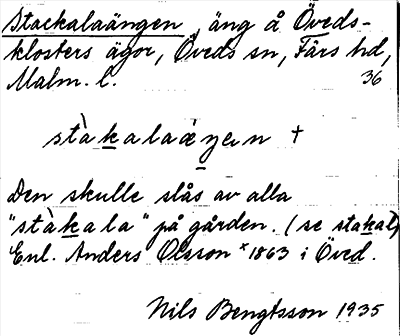 Stackalaängen, äng å Öveds-
klosters ägor, Öveds sn, Färs hd,
Malm. l. 36
stàkalaæŋen †
Den skulle slås av alla
"stàkala" på gården. (se stakal)
Enl. Anders Olsson * 1863 i Öved.
Nils Bengtsson 1935